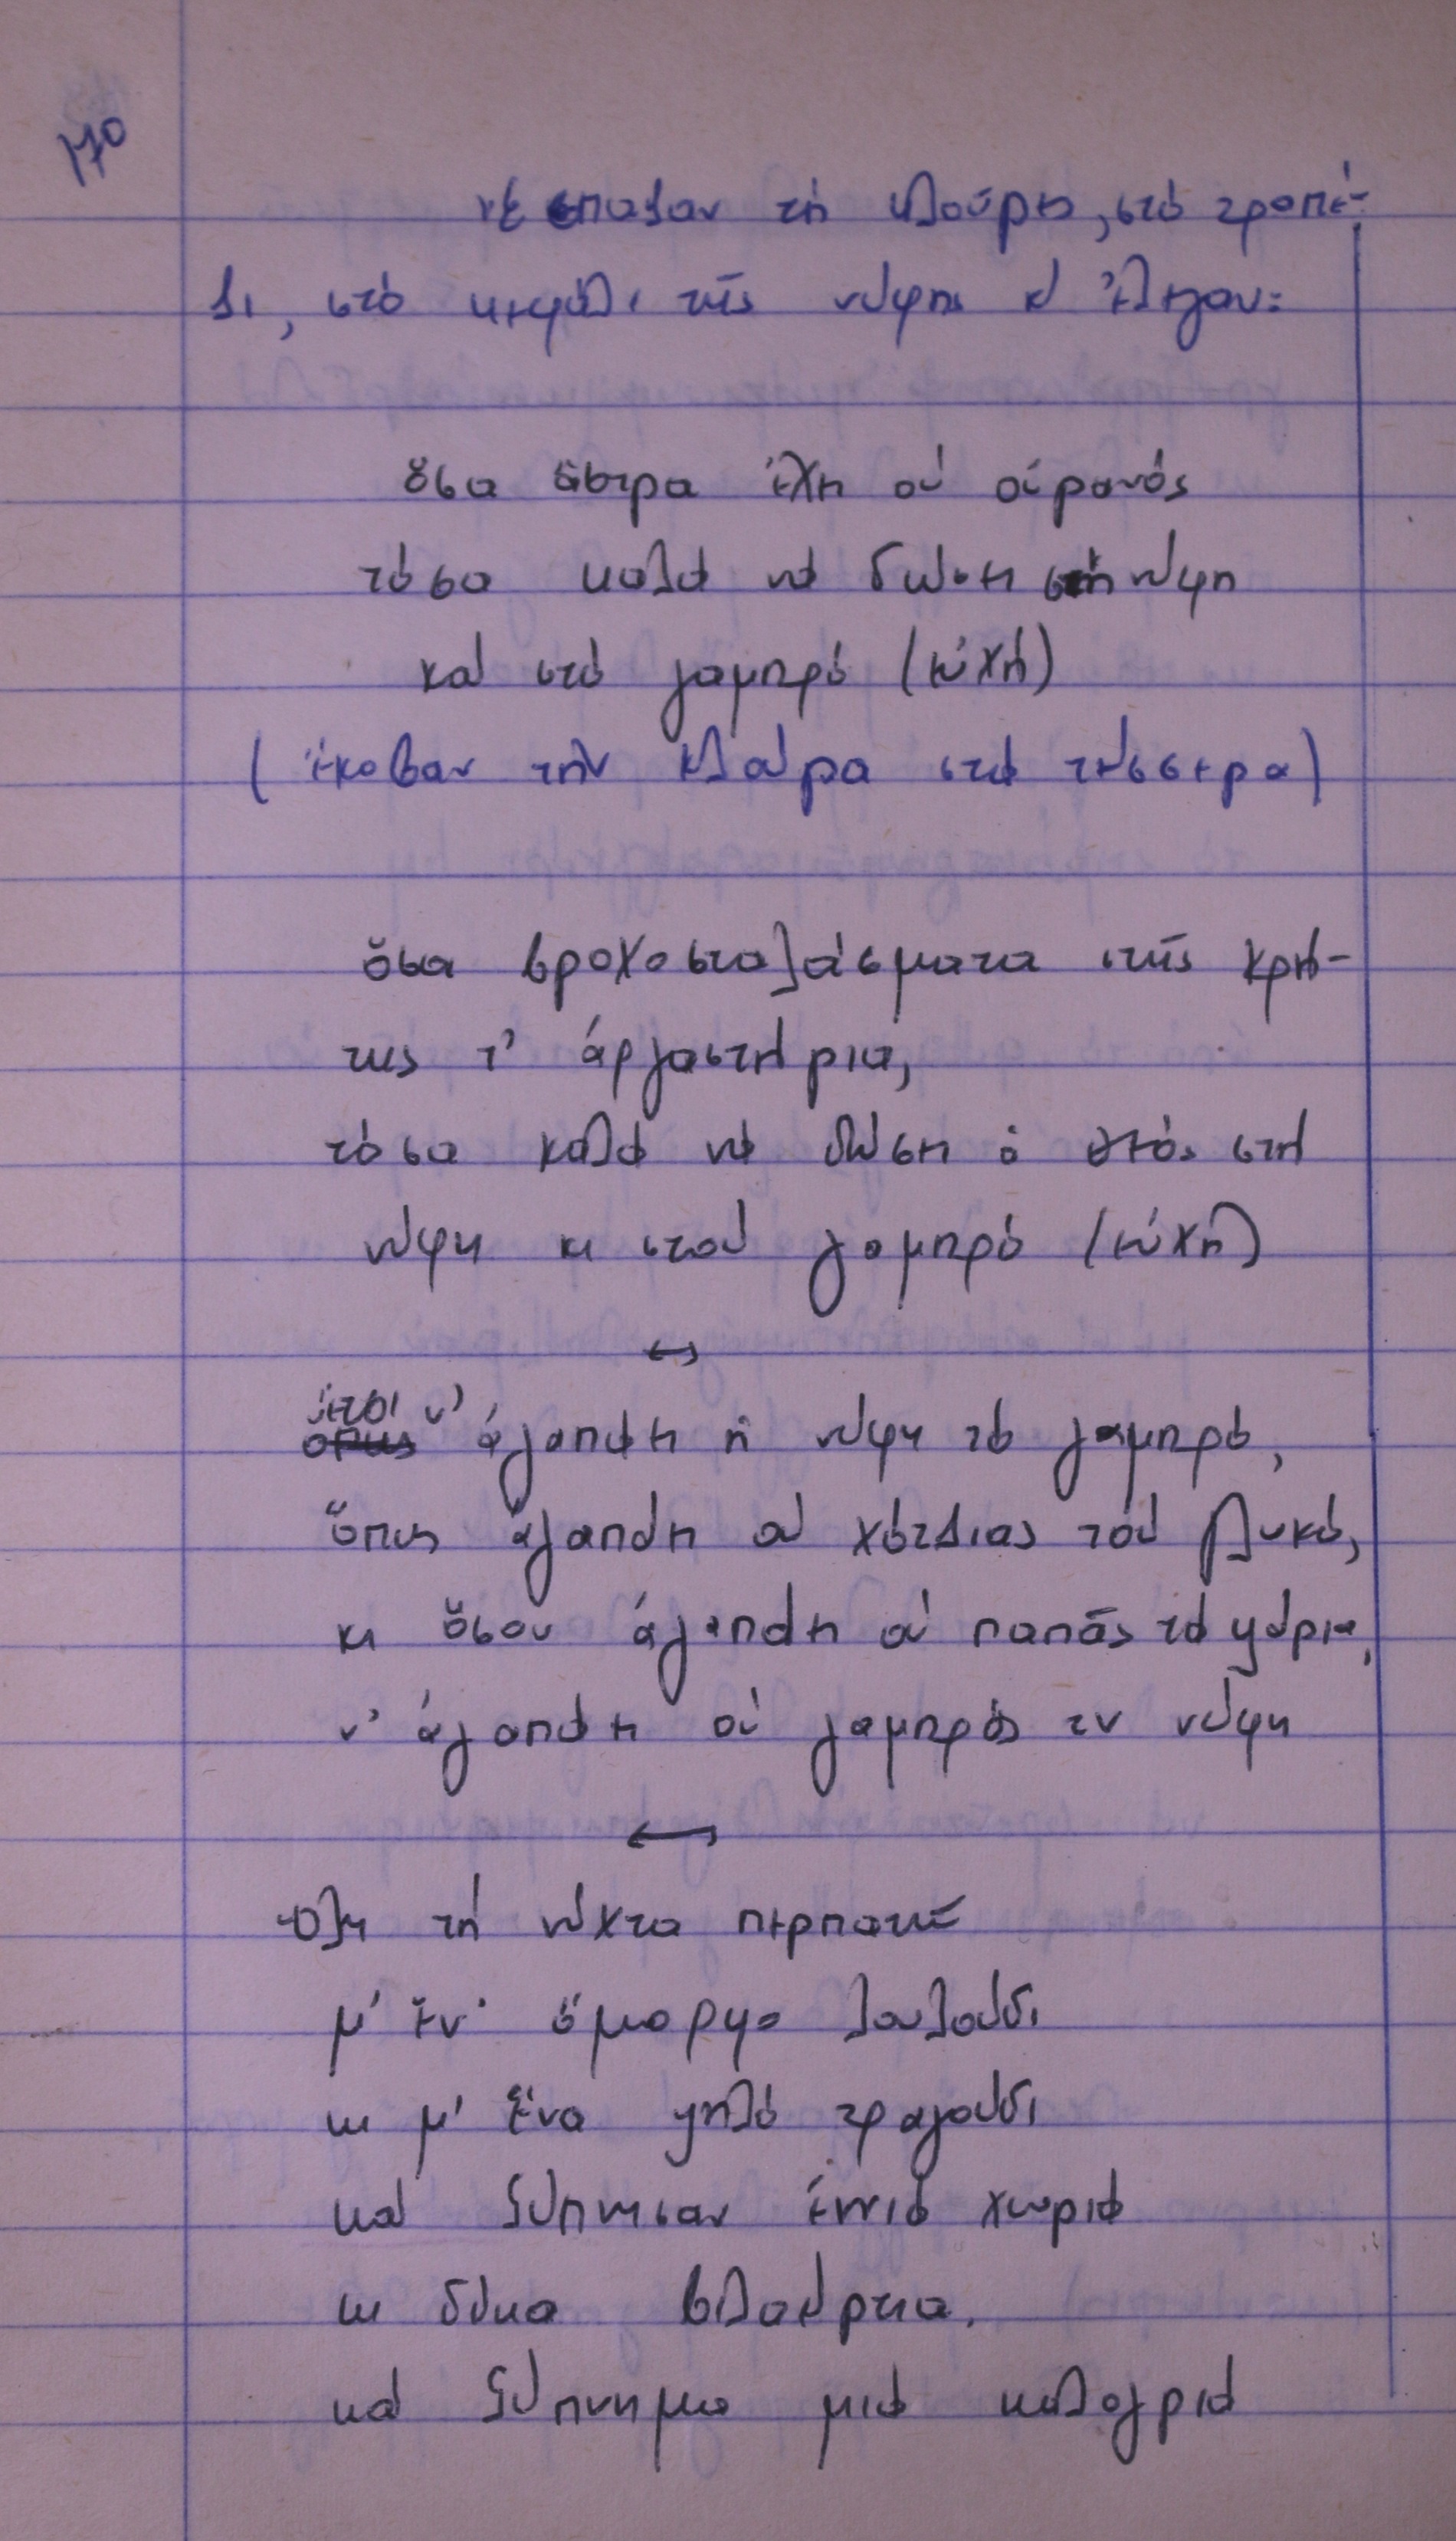 170
σπαζαν τή κλούρη, στό τραπέ-
ζι, στό κεφάλι τῆς νύφης κ' ἔλεγαν:
ὅσα ἄστρα ἔχη οὑ οὐρανός
τόσα καλά νά δώση στή νύφη
καί στό γαμπρό (εὐχή)
(ἔκοβαν τήν κλούρα στά τέσσερα)
ὅσα βροχοσταλάσματα στῆς Κρή-
της τ' ἀργαστήρια,
τόσα καλά νά δώση ὁ θεός στή
νύφη κι στού γαμπρό (εὐχή)
ἔτσι ν' ἀγαπάη ἡ νύφη τό γαμπρό,
ὅπως ἀγαπάη οὑ χότζιας τού γλυκό,
κι ὅσου ἀγαπάη οὑ παπᾶς τά ψάρια,
ν' ἀγαπάη οὑ γαμπρός τν νύφη
Ὅλη τή νύχτα περπατεῖ
μ' ἕν' ὄμορφο λουλούδι
κι μ' ἕνα ψηλό τραγούδι
καί ξύπνησαν ἐννιά χωριά
κι δέκα βλαούρτια.
καί ξύπνησα μιά καλογριά